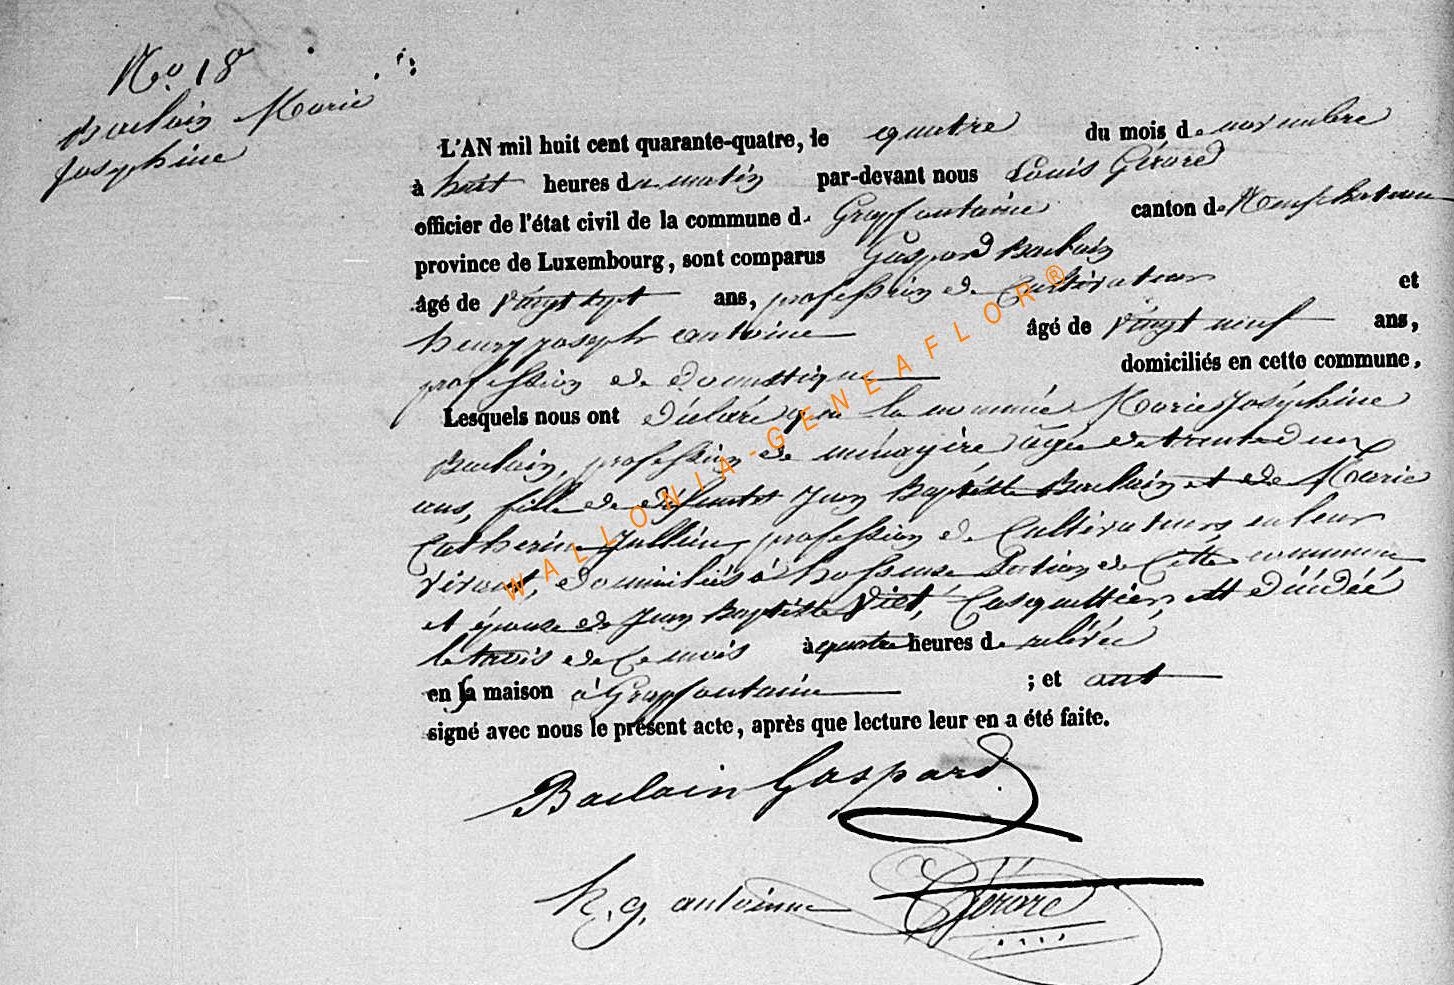 No. 18
Baclain Marie
Josephine
L'AN mil huit cent quarante-quatre, le quatre du mois de novembre
à huit heures du matin par-devant nous Louis Gérard
officier de l'état civil de la commune de Grapfontaine canton de Neufchateau
province de Luxembourg, sont comparus Gaspard Baclain
âgé de vingt sept ans, profession de Cultivateur et
henry joseph antoine âgé de vingt neuf ans,
profession de domestique domiciliés en cette commune,
Lesquels nous ont déclaré que la nommée Marie Joséphine
Baclain, profession de ménagère âgée de trente deux
ans, fille de defunts Jean Baptiste Baclain et de Marie
Catherine Jullien, profession de Cultivateurs en leur
vivant, domiciliés à hosseuse Section de Cette commune
et épouse de Jean Baptiste Casquettier, est décédée
le trois de Ce mois à quatre heures de relevée
en sa maison à Grapfontaine ; et ont
signé avec nous le présent acte, après que lecture leur en a été faite.
Baclain Gaspard
h. g. antoinne Gérard
WALLONIA-GENEAFLOR®